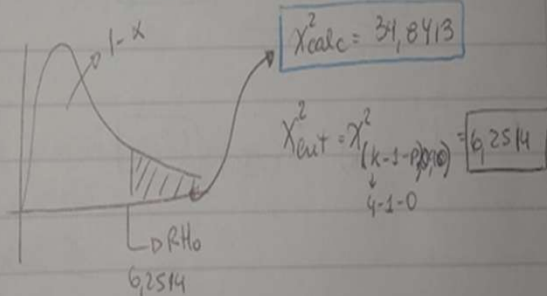 1-α
X²calc = 34,8413
X²crit = X²(k-1-p)(0,10) = 6,2514
4-1-0
RH₀
6,2514